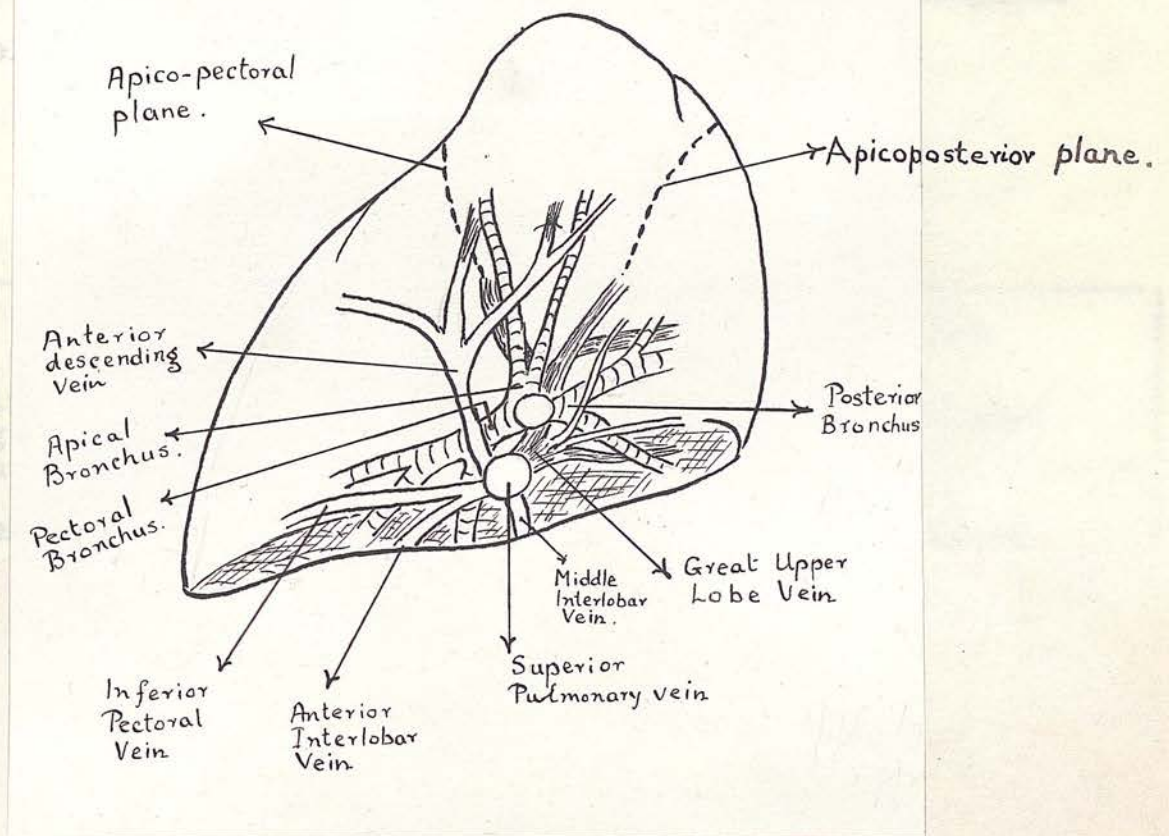 Apico-pectoral
plane.
Apicoposterior plane.
Anterior
descending
vein
Apical
Bronchus.
Pectoral
Bronchus.
Posterior
Bronchus
Great Upper
Lobe Vein
Middle
Interlobar
Vein.
Superior
Pulmonary vein
Inferior
Pectoral
Vein
Anterior
Interlobar
Vein